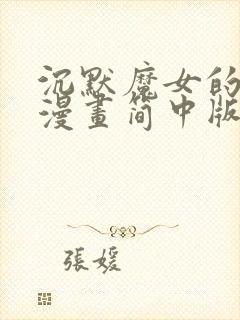 沉默魔女的
漫畫简中版
張媛